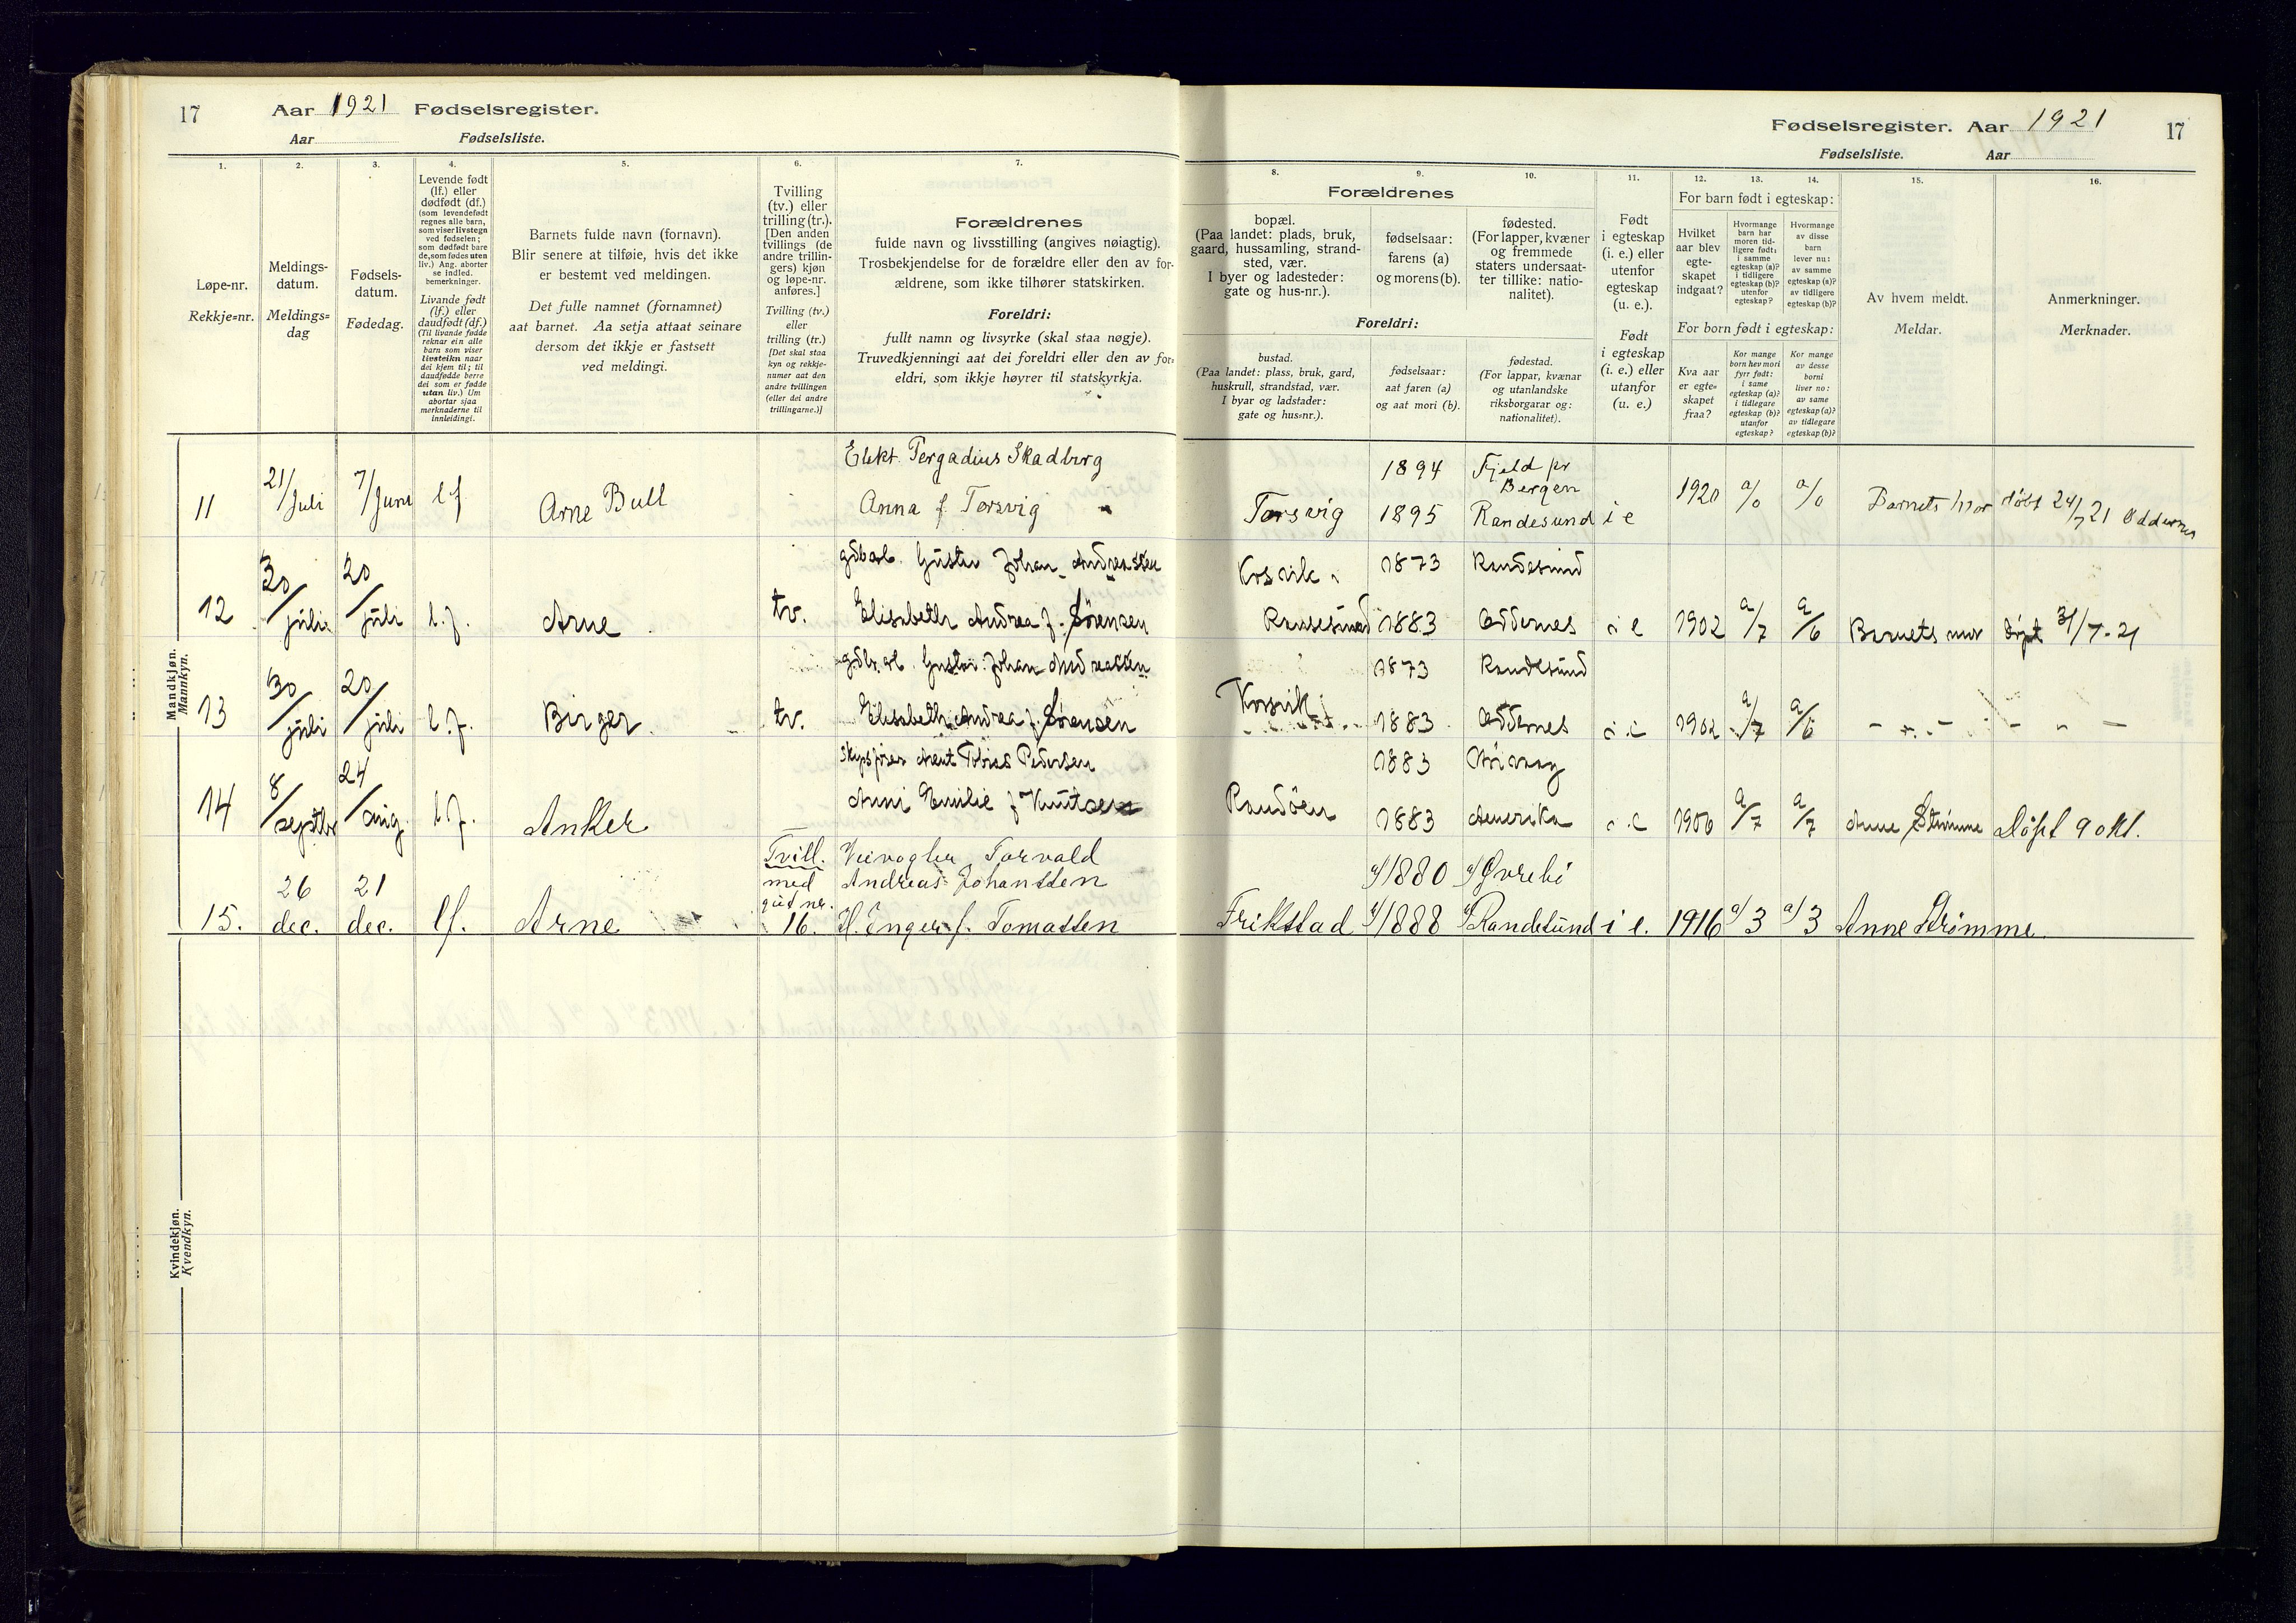 17 Aar 1921 Fødselsregister.
Aar Fødselsliste.
Fødselsregister. Aar 1921 17
Fødselsliste. Aar
1.
2.
3.
4.
5.
6.
7.
8.
9.
10.
11.
12.
13.
14.
15.
16.
Løpe-nr.
Rekkje=nr.
Meldings-
datum.
Meldings=
dag
Fødsels-
datum.
Fødedag.
Levende født
(lf.) eller
dødfødt (df.)
(som levendefødt
regnes alle barn,
som viser livstegn
ved fødselen;
som dødfødt bare
de, som fødes uten
liv.) Ang. aborter
se indled.
bemerkninger.
Livande født
(lf.) eller
daudfødt (df.)
(Til livande fødde
reknar ein alle
barn som viser
livsteikn naar
dei kjem til; til
daudfødde berre
dei som er fødde
utan liv.) Um
abortar sjaa
merknaderne til
innleidingi.
Barnets fulde navn (fornavn).
Blir senere at tilføie, hvis det ikke
er bestemt ved meldingen.
Det fulle namnet (fornamnet)
aat barnet. Aa setja attaat seinare
dersom det ikkje er fastsett
ved meldingi.
Tvilling
(tv.) eller
trilling (tr.).
[Den anden
tvillings (de
andre trillin-
gers) kjøn
og løpe-nr.
anføres.]
Tvilling (tv.)
eller
trilling (tr.)
[Det skal staa
kyn og rekkje-
numer aat den
andre tvillingen
(eller dei andre
trillingarne.)]
Forældrenes
fulde navn og livsstilling (angives nøiagtig).
Trosbekjendelse for de forældre eller den av for-
ældrene, som ikke tilhører statskirken.
Foreldri:
fullt namn og livsyrke (skal staa nøgje).
Truvedkjenningi aat dei foreldri eller den av for=
eldri, som ikkje høyrer til statskyrkja.
Forældrenes
bopæl.
(Paa landet: plads, bruk,
gaard, hussamling, strand-
sted, vær.
I byer og ladesteder:
gate og hus-nr.).
fødselsaar:
farens (a)
og morens (b).
fødested.
(For lapper, kvæner
og fremmede
staters undersaat-
ter tillike: natio-
nalitet).
Foreldri:
bustad.
(Paa landet: plass, bruk, gard,
huskrull, strandstad, vær.
I byar og ladstader:
gate og hus=nr.).
fødselsaar:
aat faren (a)
og aat mori (b).
fødestad.
(For lappar, kvænar
og utanlandske
riksborgarar og:
nationalitet).
Født
i egteskap
(i. e.) eller
utenfor
egteskap
(u. e.).
Født
i egteskap
(i. e.) eller
utanfor
(u. e.)
For barn født i egteskap:
Hvilket
aar blev
egte-
skapet
indgaat?
Hvormange
barn har
moren tid-
ligere født:
i samme
egteskap (a)?
i tidligere
egteskap (b)?
utenfor
egteskap?
Hvormange
av disse
barn
lever nu:
av samme
egteskap (a)?
av tidligere
egteskap (b)?
For born født i egteskap:
Kva aar
er egte-
skapet
fraa?
Kor mange
born hev mori
fyrr født:
i same
egteskap (a)?
i tidlegare
egteskap (b)?
utanfor
egteskap?
Kor mange
av desse
borni
liver no:
av same
egteskap (a)?
av tidlegare
egteskap (b)?
Av hvem meldt.
Meldar.
Anmerkninger.
Merknader.
Mandkjøn.
Mannkyn.
11 21/Juli 7/Juni lf Arne Bull Elekt. Pergadius Skadberg
Anna f Torsvig
Torsvig 1894 Fjeld pr Bergen
1895 Randesund i e 1920 a/0 a/0 Barnets mor døbt 24/7 21 Oddernes
12 30/juli 20/juli l.f. Arne tv. gdbr.arb. Gustav Johan Andreassen
Elisabeth Andrea f. Sørensen
Korsvik 1873 Randesund
Randesund 1883 Oddernes i e 1902 a/7 a/6 Barnets mor døpt 31/7-21
13 30/juli 20/juli l.f. Birger tv. gdbr.arb. Gustav Johan Andreassen
Elisabeth Andrea f. Sørensen
Korsvik 1873 Randesund
1883 Oddernes i e 1902 a/7 a/6 - " - - " -
14 8/septbr 24/aug. l.f. Anker Skipsfører Arent Tobias Pedersen
Anni Emilie f Knutsen
Randøen 1883
1883 Amerika i e 1906 a/7 a/7 Anne Strømme Døpt 9 okt.
15. 26 dec. 21 dec. lf. Arne Tvill. med gut nr. 16. Veivogter Torvald
Andreas Johanssen
H. Inger f. Tomassen
Frikstad a/1880 a/Øvrebø
b/1888 b/Randesund i e. 1916 a/3 a/3 Anne Strømme
Kvindekjøn.
Kvendkyn.